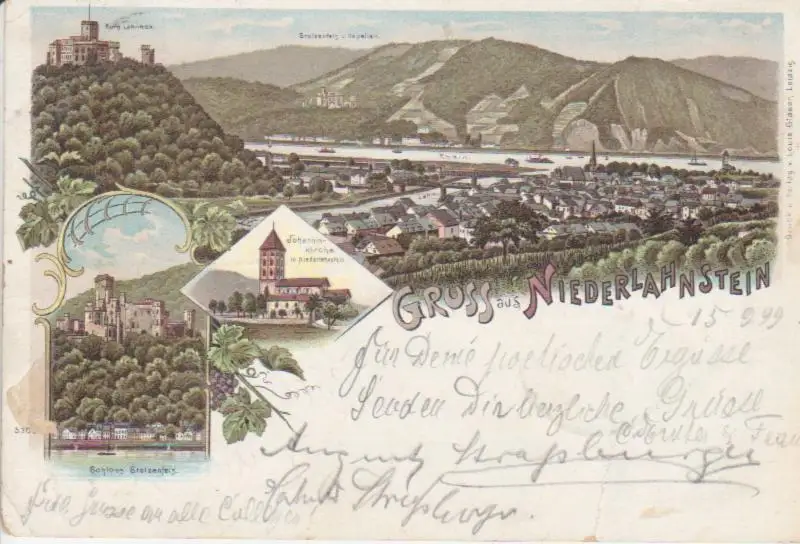 Burg Lahneck.
Stolzenfels u. Kapellen.
Rhein
Johannis-
kirche
in Niederlahnstein
GRUSS aus NIEDERLAHNSTEIN
15 9 99
Für Deine poetischen Ergüsse
Senden Dir herzliche Grüsse
August Strassburger
Strassburger
Viele Grüsse an alle Collegen
Schloss Stolzenfels.
Louis Glaser, Leipzig.